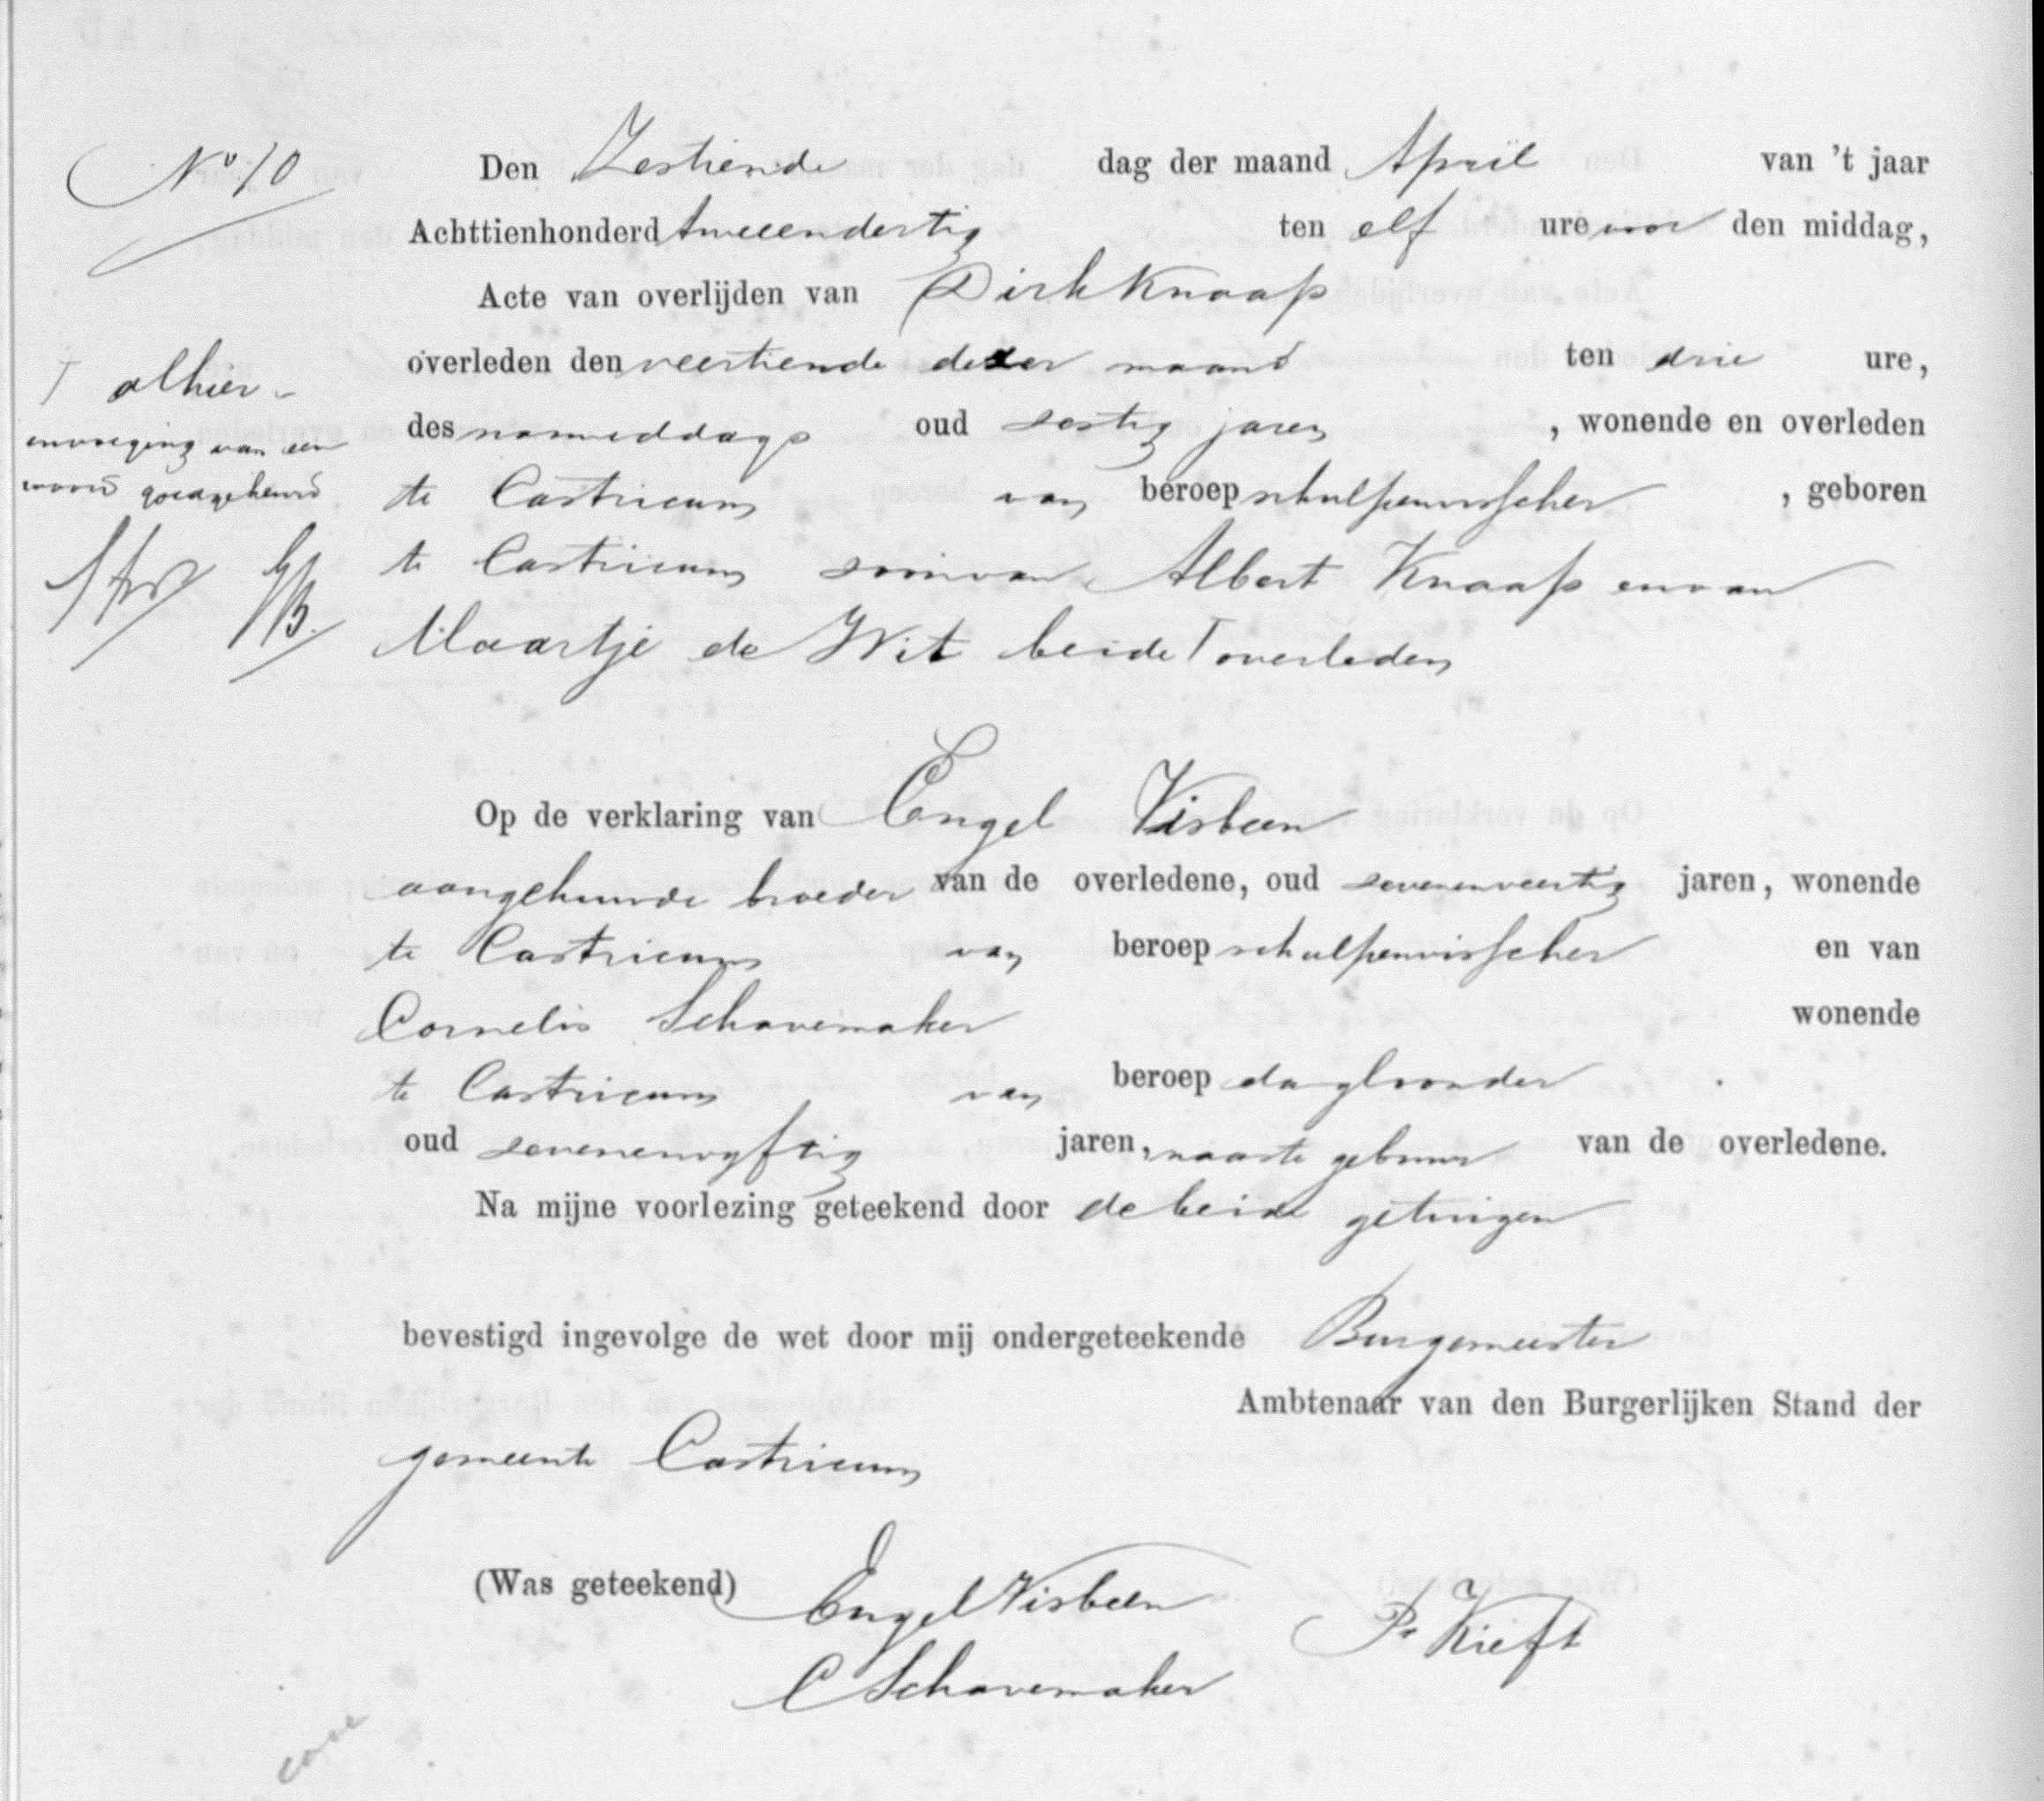 No 10
Den Zestiende dag der maand April van 't jaar
Achttienhonderd tweeendertig ten elf ure voor den middag,
Acte van overlijden van Dirk Knaap
overleden den veertiende dezer maand ten drie ure,
des nameddags oud sestig jaren, wonende en overleden
te Castricum van beroep schulpenvisscher, geboren
te Castricum soon van Albert Knaap en van
Maartje de Wit beide T overleden
T alhier
invoeging van een
woord goedgekeurd
Op de verklaring van Engel Visbeen
aangehuwde broeder van de overledene, oud sevenenveertig jaren, wonende
te Castricum van beroep schulpenvisscher en van
Cornelis Schavemaker wonende
te Castricum van beroep dagloonder
oud sevenenvyftig jaren, naaste gebuur van de overledene.
Na mijne voorlezing geteekend door de beide getuigen
bevestigd ingevolge de wet door mij ondergeteekende Burgemeester
Ambtenaar van den Burgerlijken Stand der
gemeente Castricum
(Was geteekend) Engel Visbeen
Pr Kieft
C Schavemaker